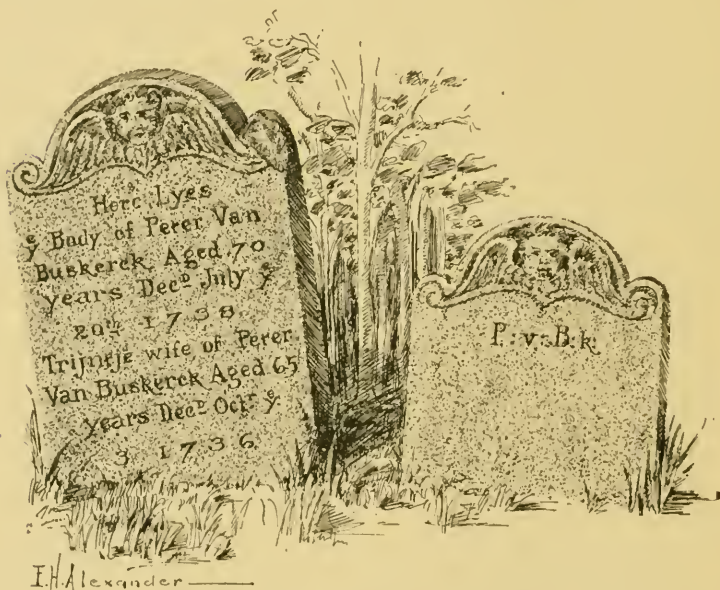 Here Lyes
yͤ Body of Peter Van
Buskerck Aged 70
years Decᴰ July yͤ
20ᵗʰ 1738
Trijntje wife of Peter
Van Buskerck Aged 65
years Decᴰ Octʳ yͤ
3 1736
P:v:B:k:
E.H.Alexander